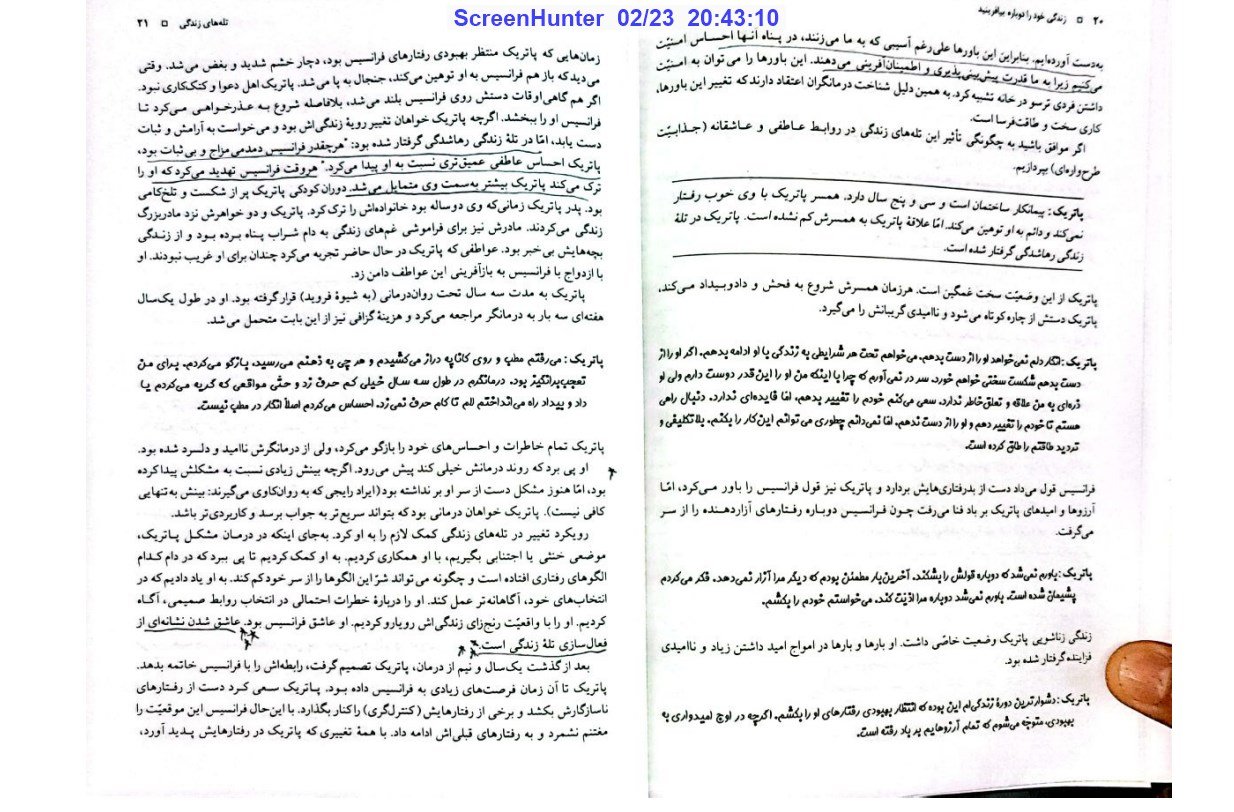 ScreenHunter 02/23 20:43:10
۲۰ □ زندگی خود را دوباره بیافرینید
به‌دست آورده‌ایم. بنابراین این باورها علی‌رغم آسیبی که به ما می‌زنند، در پناه آنها احساس امنیّت
می‌کنیم زیرا به ما قدرت پیش‌بینی‌پذیری و اطمینان‌آفرینی می‌دهند. این باورها را می‌توان به امنیّت
داشتن فردی ترسو در خانه تشبیه کرد. به همین دلیل شناخت درمانگران اعتقاد دارند که تغییر این باورها،
کاری سخت و طاقت‌فرسا است.
اگر موافق باشید به چگونگی تأثیر این تله‌های زندگی در روابط عاطفی و عاشقانه (جذابیّت
طرح‌واره‌ای) بپردازیم.
پاتریک: پیمانکار ساختمان است و سی و پنج سال دارد. همسر پاتریک با وی خوب رفتار
نمی‌کند و دائم به او توهین می‌کند. امّا علاقهٔ پاتریک به همسرش کم نشده است. پاتریک در تلهٔ
زندگی رهاشدگی گرفتار شده است.
پاتریک از این وضعیّت سخت غمگین است. هرزمان همسرش شروع به فحش و دادوبیداد می‌کند،
پاتریک دستش از چاره کوتاه می‌شود و ناامیدی گریبانش را می‌گیرد.
پاتریک: انگار دلم نمی‌خواهد او را از دست بدهم. می‌خواهم تحت هر شرایطی به زندگی با او ادامه بدهم. اگر او را از
دست بدهم شکست سختی خواهم خورد. سر در نمی‌آورم که چرا با اینکه من او را این قدر دوست دارم ولی او
ذره‌ای به من علاقه و تعلق‌خاطر ندارد. سعی می‌کنم خودم را تغییر بدهم. امّا فایده‌ای ندارد. دنبال راهی
هستم تا خودم را تغییر دهم و او را از دست ندهم. امّا نمی‌دانم چطوری می‌توانم این‌کار را بکنم. بلاتکلیفی و
تردید طاقتم را طاق کرده است.
فرانسیس قول می‌داد دست از بدرفتاری‌هایش بردارد و پاتریک نیز قول فرانسیس را باور می‌کرد، امّا
آرزوها و امیدهای پاتریک بر باد فنا می‌رفت چون فرانسیس دوباره رفتارهای آزاردهنده را از سر
می‌گرفت.
پاتریک: باورم نمی‌شد که دوباره قولش را بشکند. آخرین‌بار مطمئن بودم که دیگر مرا آزار نمی‌دهد. فکر می‌کردم
پشیمان شده است. باورم نمی‌شد دوباره مرا اذیّت کند. می‌خواستم خودم را بکشم.
زندگی زناشویی پاتریک وضعیت خاصّی داشت. او بارها و بارها در امواج امید داشتن زیاد و ناامیدی
فزاینده گرفتار شده بود.
پاتریک: دشوارترین دورهٔ زندگی‌ام این بوده که انتظار بهبودی رفتارهای او را بکشم. اگرچه در اوج امیدواری به
بهبودی، متوجّه می‌شوم که تمام آرزوهایم بر باد رفته است.
تله‌های زندگی □ ۲۱
زمان‌هایی که پاتریک منتظر بهبودی رفتارهای فرانسیس بود، دچار خشم شدید و بغض می‌شد. وقتی
می‌دید که باز هم فرانسیس به او توهین می‌کند، جنجال به پا می‌شد. پاتریک اهل دعوا و کتک‌کاری نبود.
اگر هم گاهی‌اوقات دستش روی فرانسیس بلند می‌شد، بلافاصله شروع به عذرخواهی می‌کرد تا
فرانسیس او را ببخشد. اگرچه پاتریک خواهان تغییر رویهٔ زندگی‌اش بود و می‌خواست به آرامش و ثبات
دست یابد، امّا در تلهٔ زندگی رهاشدگی گرفتار شده بود: "هرچقدر فرانسیس دمدمی‌مزاج و بی‌ثبات بود،
پاتریک احساس عاطفی عمیق‌تری نسبت به او پیدا می‌کرد." هروقت فرانسیس تهدید می‌کرد که او را
ترک می‌کند پاتریک بیشتر به‌سمت وی متمایل می‌شد. دوران کودکی پاتریک پر از شکست و تلخ‌کامی
بود. پدر پاتریک زمانی‌که وی دوساله بود خانواده‌اش را ترک کرد. پاتریک و دو خواهرش نزد مادربزرگ
زندگی می‌کردند. مادرش نیز برای فراموشی غم‌های زندگی به دام شراب پناه برده بود و از زندگی
بچه‌هایش بی‌خبر بود. عواطفی که پاتریک در حال حاضر تجربه می‌کرد چندان برای او غریب نبودند. او
با ازدواج با فرانسیس به بازآفرینی این عواطف دامن زد.
پاتریک به مدت سه سال تحت روان‌درمانی (به شیوهٔ فروید) قرار گرفته بود. او در طول یک‌سال
هفته‌ای سه بار به درمانگر مراجعه می‌کرد و هزینهٔ گزافی نیز از این بابت متحمل می‌شد.
پاتریک: می‌رفتم مطب و روی کاناپه دراز می‌کشیدم و هر چی به ذهنم می‌رسید، بازگو می‌کردم. برای من
تعجب‌برانگیز بود. درمانگرم در طول سه سال خیلی کم حرف زد و حتّی مواقعی که گریه می‌کردم یا
داد و بیداد راه می‌انداختم لام تا کام حرف نمی‌زد. احساس می‌کردم اصلاً انگار در مطب نیست.
پاتریک تمام خاطرات و احساس‌های خود را بازگو می‌کرد، ولی از درمانگرش ناامید و دلسرد شده بود.
او پی برد که روند درمانش خیلی کند پیش می‌رود. اگرچه بینش زیادی نسبت به مشکلش پیدا کرده
بود، امّا هنوز مشکل دست از سر او بر نداشته بود (ایراد رایجی که به روان‌کاوی می‌گیرند: بینش به‌تنهایی
کافی نیست). پاتریک خواهان درمانی بود که بتواند سریع‌تر به جواب برسد و کاربردی‌تر باشد.
رویکرد تغییر در تله‌های زندگی کمک لازم را به او کرد. به‌جای اینکه در درمان مشکل پاتریک،
موضعی خنثی یا اجتنابی بگیریم، با او همکاری کردیم. به او کمک کردیم تا پی ببرد که در دام کدام
الگوهای رفتاری افتاده است و چگونه می‌تواند شرّ این الگوها را از سر خود کم کند. به او یاد دادیم که در
انتخاب‌های خود، آگاهانه‌تر عمل کند. او را دربارهٔ خطرات احتمالی در انتخاب روابط صمیمی، آگاه
کردیم. او را با واقعیّت رنج‌زای زندگی‌اش رویارو کردیم. او عاشق فرانسیس بود. عاشق شدن نشانه‌ای از
فعال‌سازی تلهٔ زندگی است.
بعد از گذشت یک‌سال و نیم از درمان، پاتریک تصمیم گرفت، رابطه‌اش را با فرانسیس خاتمه بدهد.
پاتریک تا آن زمان فرصت‌های زیادی به فرانسیس داده بود. پاتریک سعی کرد دست از رفتارهای
ناسازگارش بکشد و برخی از رفتارهایش (کنترل‌گری) را کنار بگذارد. با این‌حال فرانسیس این موقعیّت را
مغتنم نشمرد و به رفتارهای قبلی‌اش ادامه داد. با همهٔ تغییری که پاتریک در رفتارهایش پدید آورد،